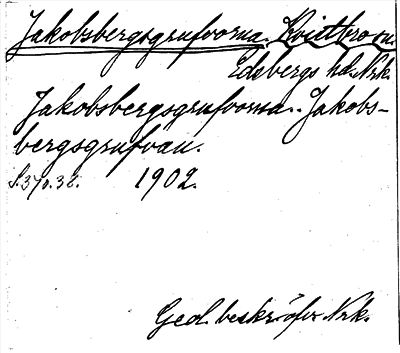 Jakobsbergsgrufvorna. Kvistbro sn.
Edsbergs hd. Nrk.
Jakobsbergsgrufvorna. Jakobs-
bergsgrufvan.
S. 37 o. 38. 1902.
Geol. beskr. öfver Nrk.